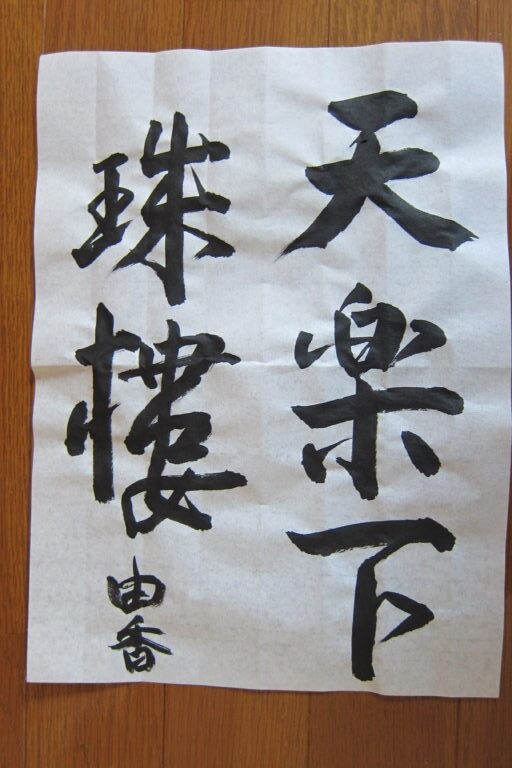 天楽下
珠樓
由香